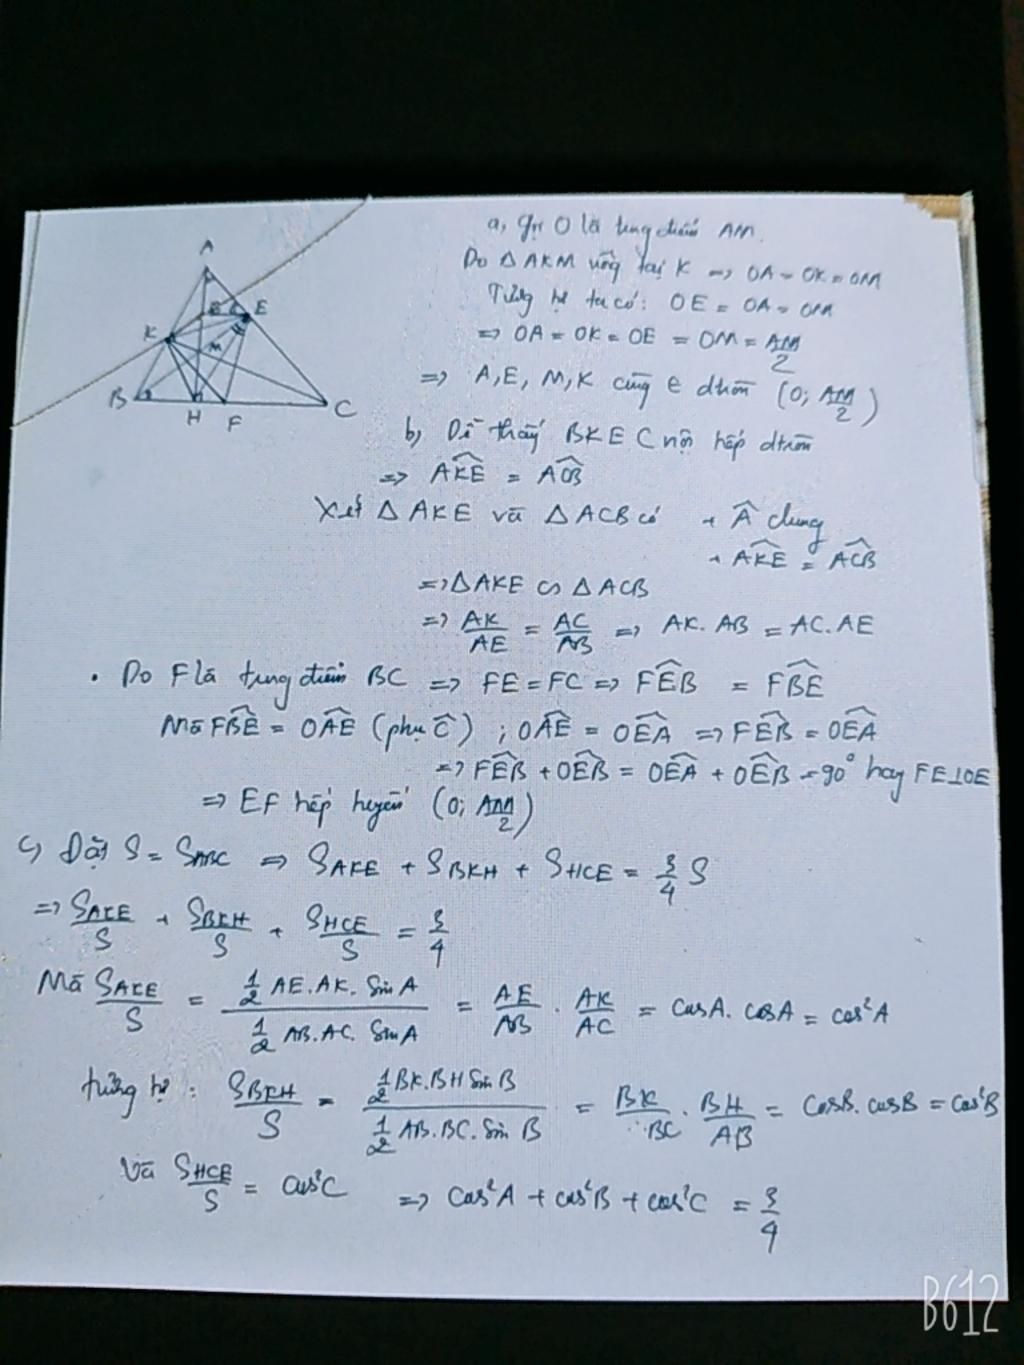 A
E
K
M
B
H
F
C
a, Gọi O là trung điểm AM.
Do △ AKM vuông tại K => OA = OK = OM
Tương tự ta có: OE = OA = OM
=> OA = OK = OE = OM = AM/2
=> A, E, M, K cùng € đtròn (O; AM/2)
b, Dễ thấy BKEC nội tiếp đtròn
=> AKE = ACB
Xét △ AKE và △ ACB có + Â chung
+ AKE = ACB
=> △AKE ∽ △ACB
=> AK/AE = AC/AB => AK. AB = AC. AE
• Do F là trung điểm BC => FE = FC => FEB = FBE
Mà FBE = OAE (phụ Ĉ) ; OAE = OEA => FEB = OEA
=> FEB + OEB = OEA + OEB = 90° hay FE⊥OE
=> EF tiếp tuyến (O; AM/2)
c, Đặt S = SABC => SAKE + SBKH + SHCE = 3/4 S
=> SAKE/S + SBKH/S + SHCE/S = 3/4
Mà SAKE/S = (1/2 AE.AK. Sin A)/(1/2 AB.AC. Sin A) = AE/AB . AK/AC = cosA. cosA = cos²A
tương tự : SBKH/S = (1/2 BK.BH Sin B)/(1/2 AB.BC. Sin B) = BK/BC . BH/AB = CosB. cosB = Cos²B
Và SHCE/S = cos²C => Cos²A + cos²B + cos²C = 3/4
B612